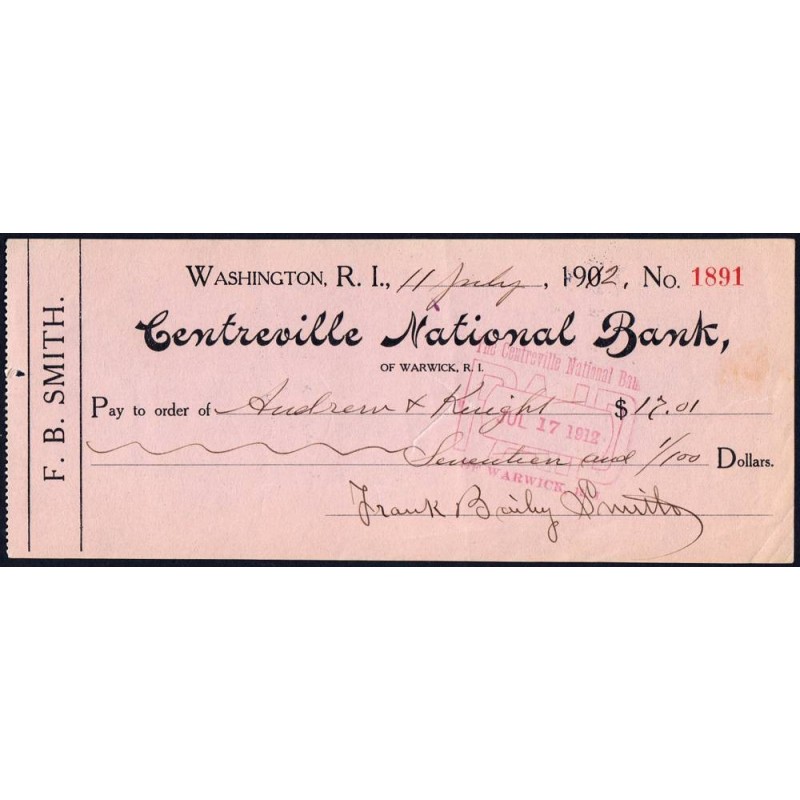 F. B. SMITH.
WASHINGTON, R. I., 11 July, 1912, No. 1891
Centreville National Bank,
OF WARWICK, R. I.
The Centreville National Ban
Pay to order of Andrew & Knight $17.01
PAID
JUL 17 1912
Seventeen and 1/100 Dollars.
OF WARWICK, R.I.
Frank Baily Smith